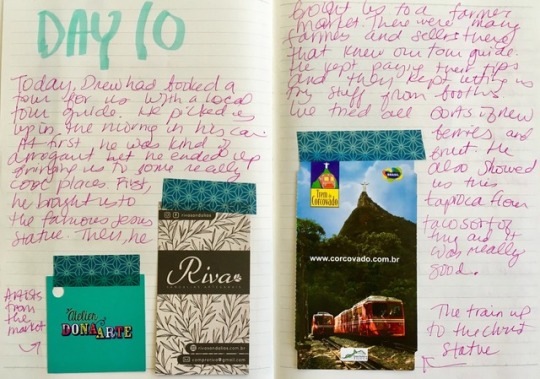 DAY 10
Today, Drew had booked a
tour for us with a local
tour guide. He picked us
up in the morning in his car.
At first he was kind of
arrogant but he ended up
bringing us to some really
cool places. First,
he brought us to
the famous Jesus
statue. Then, he
Artists
from
the
market
Atelier
DONA ARTE
Riva
rivasandalias
rivasandalias.com.br
brought us to a farmer
market. There were many
farmers and sellers there
that knew our tour guide.
He kept paying them tips
and they kept letting us
try stuff from booths
We tried all sorts of new
berries and
fruit. He
also showed
us this
tapioca flour
taco sort of
It
was really
good.
Trem do
Corcovado
BRASIL
www.corcovado.com.br
The train up
to the Christ
statue